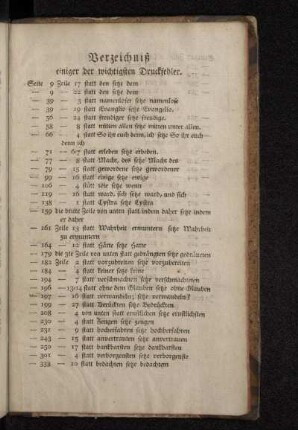 Verzeichniß
einiger der wichtigsten Druckfehler.
Seite 9 Zeile 17 statt den setze dem
— 9 — 22 statt den setze dem
— 39 — 3 statt namenloser setze namenlos
— 39 — 19 statt Evanglie setze Evangelie.
— 56 — 24 statt freudiger setze freudige.
— 58 — 8 statt mitten allen setze mitten unter allen.
— 66 — 4 statt So ihr euch denn, ich setze So ihr euch
denn ich
— 71 — 6-7 statt erleben setze erheben.
— 77 — 8 statt Macht, des setze Macht des
— 79 — 15 statt gewordene setze gewordener
— 92 — 16 statt einige setze einige
— 106 — 4 statt wie setze wenn
— 119 — 16 statt ward, sich setze ward, und sich
— 138 — 1 statt Cysten setze Cysten
— 159 die dritte Zeile von unten statt indem daher setze indem
er daher
— 161 Zeile 13 statt Wahrheit ermuntern setze Wahrheit
zu ermuntern
— 164 — 12 statt Hätte setze Hatte
— 179 die 3te Zeile von unten statt gedrängten setze
— 182 Zeile 2 statt vorzubereiten setze vorzubereiten
— 184 — 4 statt seiner setze seine
— 194 — 7 statt verschmachten setze verschmachteten
— 196 — 13-14 statt ohne dem Glauben setze ohne Glauben
— 197 — 16 statt verwandeln; setze verwandeln?
— 199 — 27 statt Bedrücken setze Bedrückten
— 208 — 4 von unten statt ernstlichen setze ernstlichsten
— 230 — 4 statt Zeugen setze zeugen
— 231 — 9 statt hocherfahren setze hocherfahren
— 243 — 15 statt anvertrauten setze anvertrauten
— 250 — 17 statt dankbarsten setze dankbarsten
— 301 — 4 statt verborgensten setze verborgenste
— 333 — 10 statt bedachten setze bedachtem